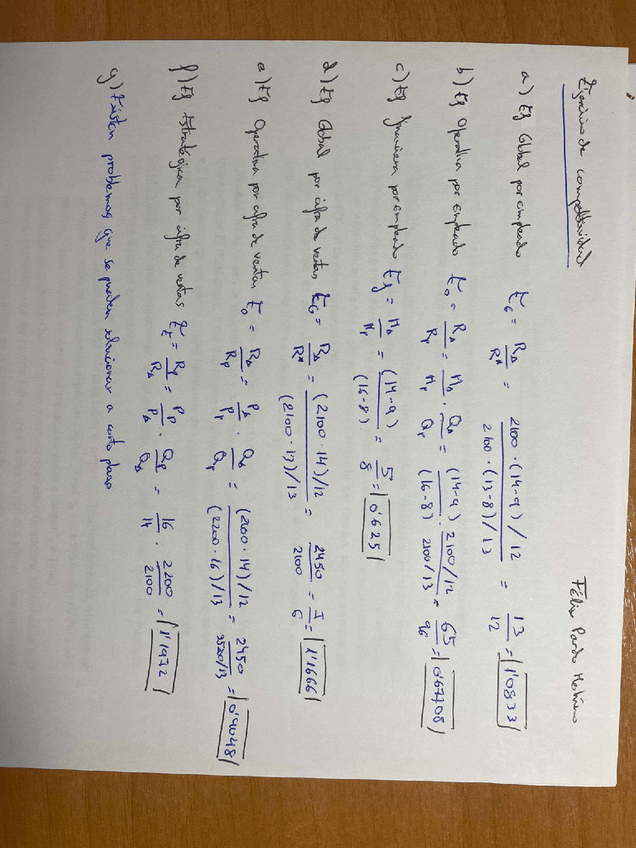 Ejercicio de competitividad
Félix Pardo
a) Ef Global por empleado E_G = R_A / R* = 2100 · (14-9) / 12 / 2100 · (13-8) / 13 = 13 / 12 = 1'0833
b) Ef Operativa por empleado E_o = R_A / R_P = M_A / M_P · Q_A / Q_P = (14-9) / (16-8) · 2100/12 / 2100/13 = 65 / 96 = 0'67708
c) Ef financiera por empleado E_f = M_A / M_P = (14-9) / (16-8) = 5 / 8 = 0'625
d) Ef Global por cifra de ventas E_G = R_A / R* = (2100 · 14) / 12 / (2100 · 13) / 13 = 2450 / 2100 = 7 / 6 = 1'1666
e) Ef Operativa por cifra de ventas E_o = R_A / R_P = P_A / P_P · Q_A / Q_P = (2100 · 14) / 12 / (2200 · 16) / 13 = 2450 / 3520/13 = 0'9048
f) Ef Estratégica por cifra de ventas E_E = R_P / R_A = P_P / P_A · Q_P / Q_A = 16 / 14 · 2200 / 2100 = 1'1972
g) Existen problemas que se pueden solucionar a corto plazo